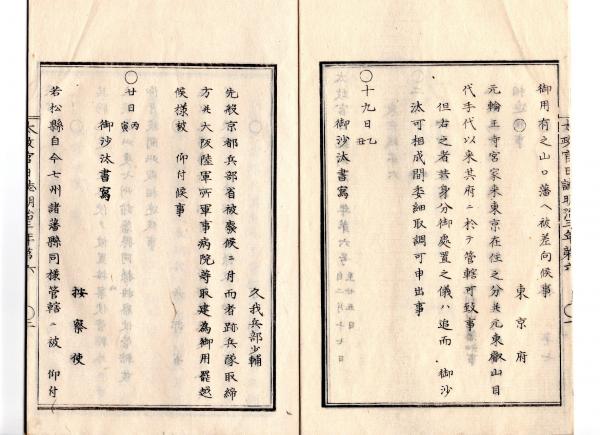 太政官日誌明治三年第六
御用有之山口藩ヘ被差向候事
東京府
元輪王寺宮家来東京在住之分並元東叡山目
代手代以来其府ニ於テ管轄可致事
但右之者共身分御處置之儀ハ追而御沙
汰可相成間委細取調可申出事
○十九日乙丑
御沙汰書寫
久我兵部少輔
先般京都兵部省被廢候ニ付而者跡兵隊取締
方並大阪陸軍所軍事病院等取建為御用罷越
候様被仰付候事
○廿日丙寅
御沙汰書寫
按察使
若松縣自今七州諸藩縣同様管轄ニ被仰付
太政官日誌明治三年第六